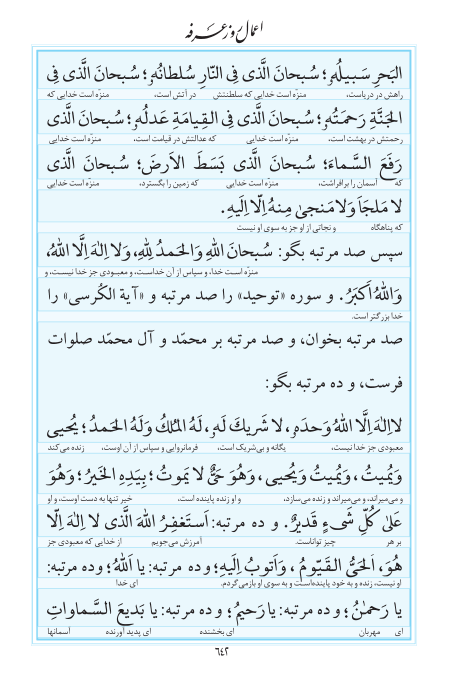 اعمال روز عرفه
البَحرِ سَبیلُهُ؛ سُبحانَ الَّذی فِی النّارِ سُلطانُهُ؛ سُبحانَ الَّذی فِی
راهش در دریاست، منزّه است خدایی که سلطنتش در آتش است، منزّه است خدایی که
الجَنَّةِ رَحمَتُهُ؛ سُبحانَ الَّذی فِی القِیامَةِ عَدلُهُ؛ سُبحانَ الَّذی
رحمتش در بهشت است، منزّه است خدایی که عدالتش در قیامت است، منزّه است خدایی
رَفَعَ السَّماءَ؛ سُبحانَ الَّذی بَسَطَ الاَرضَ؛ سُبحانَ الَّذی
که آسمان را برافراشت، منزّه است خدایی که زمین را بگسترد، منزّه است خدایی
لا مَلجَاَ وَلا مَنجیٰ مِنهُ اِلّا اِلَیهِ.
که پناهگاه و نجاتی از او جز به سوی او نیست
سپس صد مرتبه بگو: سُبحانَ اللهِ وَالحَمدُ لِلهِ، وَلا اِلٰهَ اِلَّا اللهُ،
منزّه است خدا، و سپاس از آن خداست، و معبودی جز خدا نیست، و
وَاللهُ اَکبَرُ. و سوره «توحید» را صد مرتبه و «آیة الکُرسی» را
خدا بزرگتر است.
صد مرتبه بخوان، و صد مرتبه بر محمّد و آل محمّد صلوات
فرست، و ده مرتبه بگو:
لا اِلٰهَ اِلَّا اللهُ وَحدَهُ، لا شَریكَ لَهُ، لَهُ المُلكُ وَلَهُ الحَمدُ؛ یُحیی
معبودی جز خدا نیست، یگانه و بی‌شریک است، فرمانروایی و سپاس از آن اوست، زنده می‌کند
وَیُمیتُ، وَیُمیتُ وَیُحیی، وَهُوَ حَیٌّ لا یَموتُ؛ بِیَدِهِ الخَیرُ؛ وَهُوَ
و می‌میراند، و می‌میراند و زنده می‌سازد، و او زنده پاینده است، خیر تنها به دست اوست، و او
عَلیٰ کُلِّ شَیءٍ قَدیرٌ. و ده مرتبه: اَستَغفِرُ اللهَ الَّذی لا اِلٰهَ اِلّا
بر هر چیز تواناست. آمرزش می‌جویم از خدایی که معبودی جز
هُوَ، اَلحَیُّ القَیّومُ، وَاَتوبُ اِلَیهِ؛ و ده مرتبه: یا اَللهُ؛ و ده مرتبه:
او نیست، زنده و به خود پاینده است و به سوی او بازمی‌گردم. ای خدا
یا رَحمٰنُ؛ و ده مرتبه: یا رَحیمُ؛ و ده مرتبه: یا بَدیعَ السَّماواتِ
ای مهربان ای بخشنده ای پدید آورنده آسمانها
٦٤٢